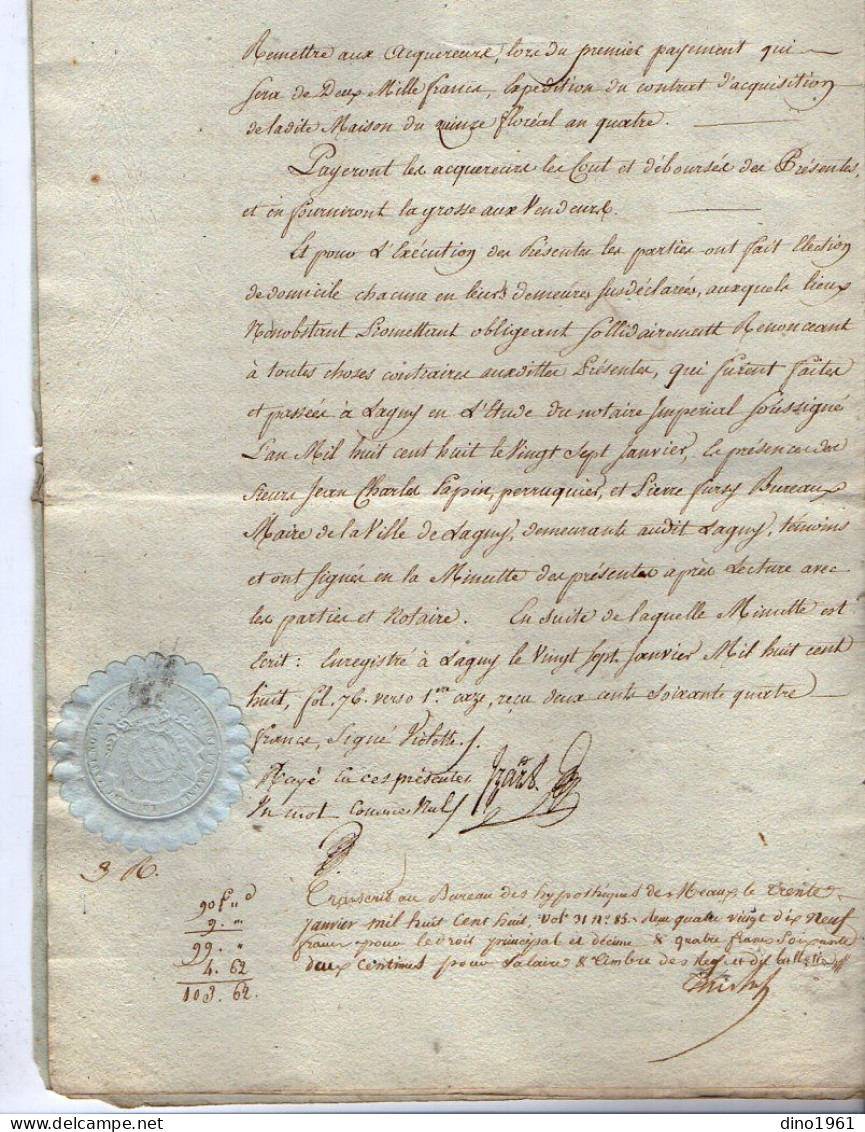 Remettre aux acquereurs, lors du premier payement qui
sera de Deux Mille francs, l'expedition du contrat d'acquisition
de ladite Maison du quinze floréal an quatre.
Payeront les acquereurs les Cout et déboursés des Présentes,
et en fourniront la grosse aux Vendeurs.
Et pour L'Exécution des Présentes les parties ont fait Election
de domicile chacune en leurs demeures susdéclarées, auxquels lieux
Nonobstant Promettant obligeant sollidairement Renonceant
à toutes choses contraires auxdittes Présentes, qui furent faites
et passées à Lagny en L'Etude du notaire Imperial soussigné
L'an Mil huit cent huit le Vingt Sept Janvier, en présence des
sieurs Jean Charles Papin, perruquier, et Pierre fursy Bureaux
Maire de la Ville de Lagny, demeurants audit Lagny, témoins
et ont signés en la Minutte des présentes après Lecture avec
les parties et Notaire. En suite de laquelle Minutte est
Ecrit : Enregistré à Lagny le Vingt Sept Janvier Mil huit cent
huit, fol. 76. verso 1.re caze, reçu deux cents soixante quatre
francs, Signé Violette.
Rayé en ces présentes
Un mot comme Nul
3 R.
90 f " d
9. "
99. "
4. 62
103. 62.
Transcrit au Bureau des hypothèques de Meaux le trente
janvier mil huit cent huit, vol. 31 N.º 85. Reçu quatre vingt dix Neuf
francs pour le droit principal et décime & quatre francs Soixante
deux Centimes pour Salaire & timbre des Reg. et
dino1961